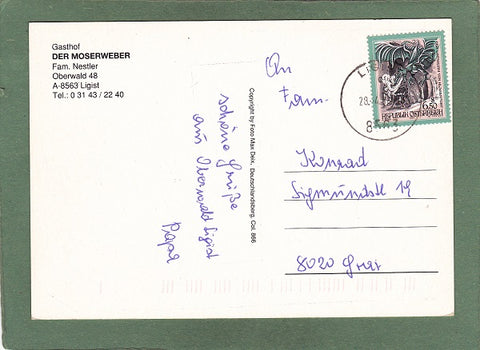 Gasthof
DER MOSERWEBER
Fam. Nestler
Oberwald 48
A-8563 Ligist
Tel.: 0 31 43 / 22 40
schöne Grüße
aus Oberwald Ligist
Papa
Copyright by Foto Max Deix, Deutschlandsberg, Col. 866
An
Fam.
Konrad
Sigmundstl 19
8020 Graz
6.50
REPUBLIK ÖSTERREICH
8563